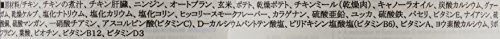 ■原材料：チキン、チキンの煮汁、チキン肝臓、ニンジン、オートブラン、玄米、ポテト、乾燥ポテト、チキンミール(乾燥肉)、キャノーラオイル、炭酸カルシウム、グァーガム、
乾燥ケルプ、塩化ナトリウム、塩化カリウム、塩化コリン、ヒッコリースモークフレーバー、カラゲナン、硫酸亜鉛、ユッカ、硫酸鉄、パセリ、ビタミンE、ナイアシン、硫
酸銅、硫酸マンガン、一硝酸チアミン、アスコルビン酸(ビタミンC)、D-カルシウムパントテン酸塩、ピリドキシン塩酸塩(ビタミンB6)、ビタミンA、ヨウ素酸カルシウム、リボフ
ラビン、葉酸、ビオチン、ビタミンB12、ビタミンD3